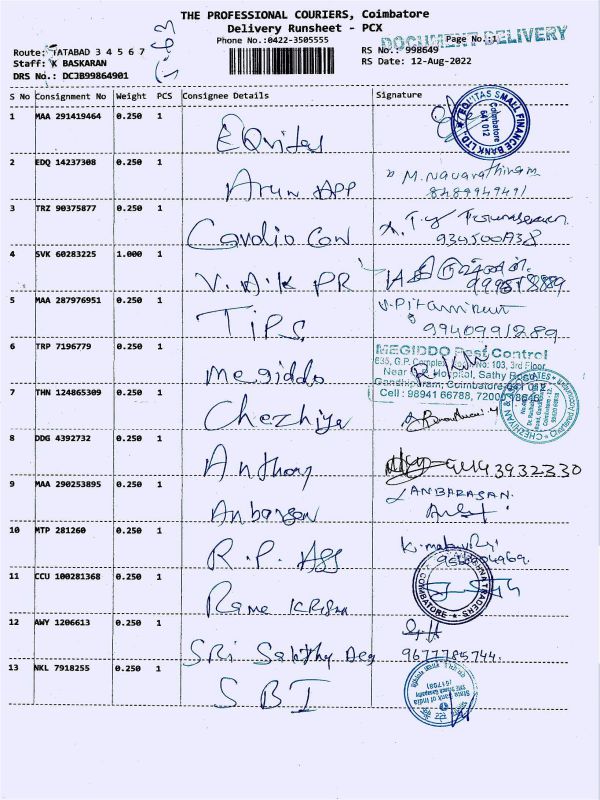 THE PROFESSIONAL COURIERS, Coimbatore
Delivery Runsheet - PCX
DOCUMENT DELIVERY
Phone No.:0422-3505555
Page No.:1
Route: TATABAD 3 4 5 6 7
RS No.: 998649
Staff: K BASKARAN
RS Date: 12-Aug-2022
DRS No.: DCJB99864901
S No Consignment No Weight PCS Consignee Details Signature
1 MAA 291419464 0.250 1 EQuitas
EQUITAS SMALL FINANCE BANK LTD. Coimbatore 641 012
2 EDQ 14237308 0.250 1 Arun APP M. Navarathinam
8489949491
3 TRZ 90375877 0.250 1 Cavdio Con
4 SVK 60283225 1.000 1 V. A. K PR
5 MAA 287976951 0.250 1 TiPS
9940991289
6 TRP 7196779 0.250 1 Megiddo
MEGIDDO Pest Control
Near Hospital, Sathy Road
Gandhipuram, Coimbatore-641 012.
Cell : 98941 66788, 72000
7 THN 124865309 0.250 1 Chezhiya
8 DDG 4392732 0.250 1 Anthony
9 MAA 290253895 0.250 1 Anbarsan ANBARASAN.
10 MTP 281260 0.250 1 R.P. ASS
11 CCU 100281368 0.250 1 Rama KRISNA
TRADERS COIMBATORE
12 AWY 1206613 0.250 1 SRi Sakthy Deg
9677785744.
13 NKL 7918255 0.250 1 SBI
State Bank of India